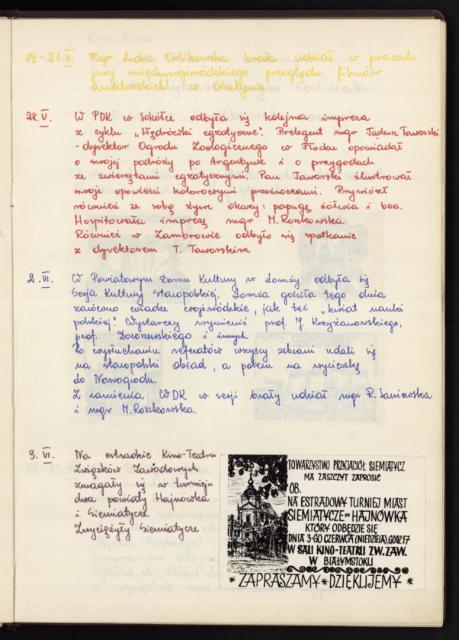 19-21.V. Mgr Lidia Orlikowska brała udział w pracach
jury międzywojewódzkiego przeglądu filmów
amatorskich w Olsztynie
24.V. W PDK w Sokółce odbyła się kolejna impreza
z cyklu „Wędrówki egzotyczne". Prelegent mgr Tadeusz Taworski
- dyrektor Ogrodu Zoologicznego w Płocku opowiadał
o swojej podróży po Argentynie i o przygodach
ze zwierzętami egzotycznymi. Pan Taworski ilustrował
swoje opowieści kolorowymi przeźroczami. Przywiózł
również ze sobą żywe okazy: papugę, żółwia i boa.
Hospitowała imprezę mgr M. Roszkowska.
Również w Zambrowie odbyło się spotkanie
z dyrektorem T. Taworskim.
2.VI. W Powiatowym Domu Kultury w Łomży odbyła się
Sesja Kultury Staropolskiej. Łomża gościła tego dnia
zarówno władze wojewódzkie, jak też „kwiat nauki
polskiej". Wystarczy wymienić prof. J. Krzyżanowskiego,
prof. Doroszewskiego i innych.
Po wysłuchaniu referatów wszyscy zebrani udali się
na staropolski obiad, a potem na wycieczkę
do Nowogrodu.
Z ramienia WDK w sesji brały udział mgr R.
i mgr M. Roszkowska.
3.VI. Na estradzie Kino-Teatru
Związków Zawodowych
zmagały się w turnieju
dwa powiaty Hajnówka
i Siemiatycze.
Zwyciężyły Siemiatycze
TOWARZYSTWO PRZYJACIÓŁ SIEMIATYCZ
MA ZASZCZYT ZAPROSIĆ
OB.
NA ESTRADOWY TURNIEJ MIAST
SIEMIATYCZE - HAJNÓWKA
KTÓRY ODBĘDZIE SIĘ
DNIA 3-GO CZERWCA (NIEDZIELA), GODZ 17
W SALI KINO-TEATRU ZW. ZAW.
W BIAŁYMSTOKU
* ZAPRASZAMY * DZIĘKUJEMY *